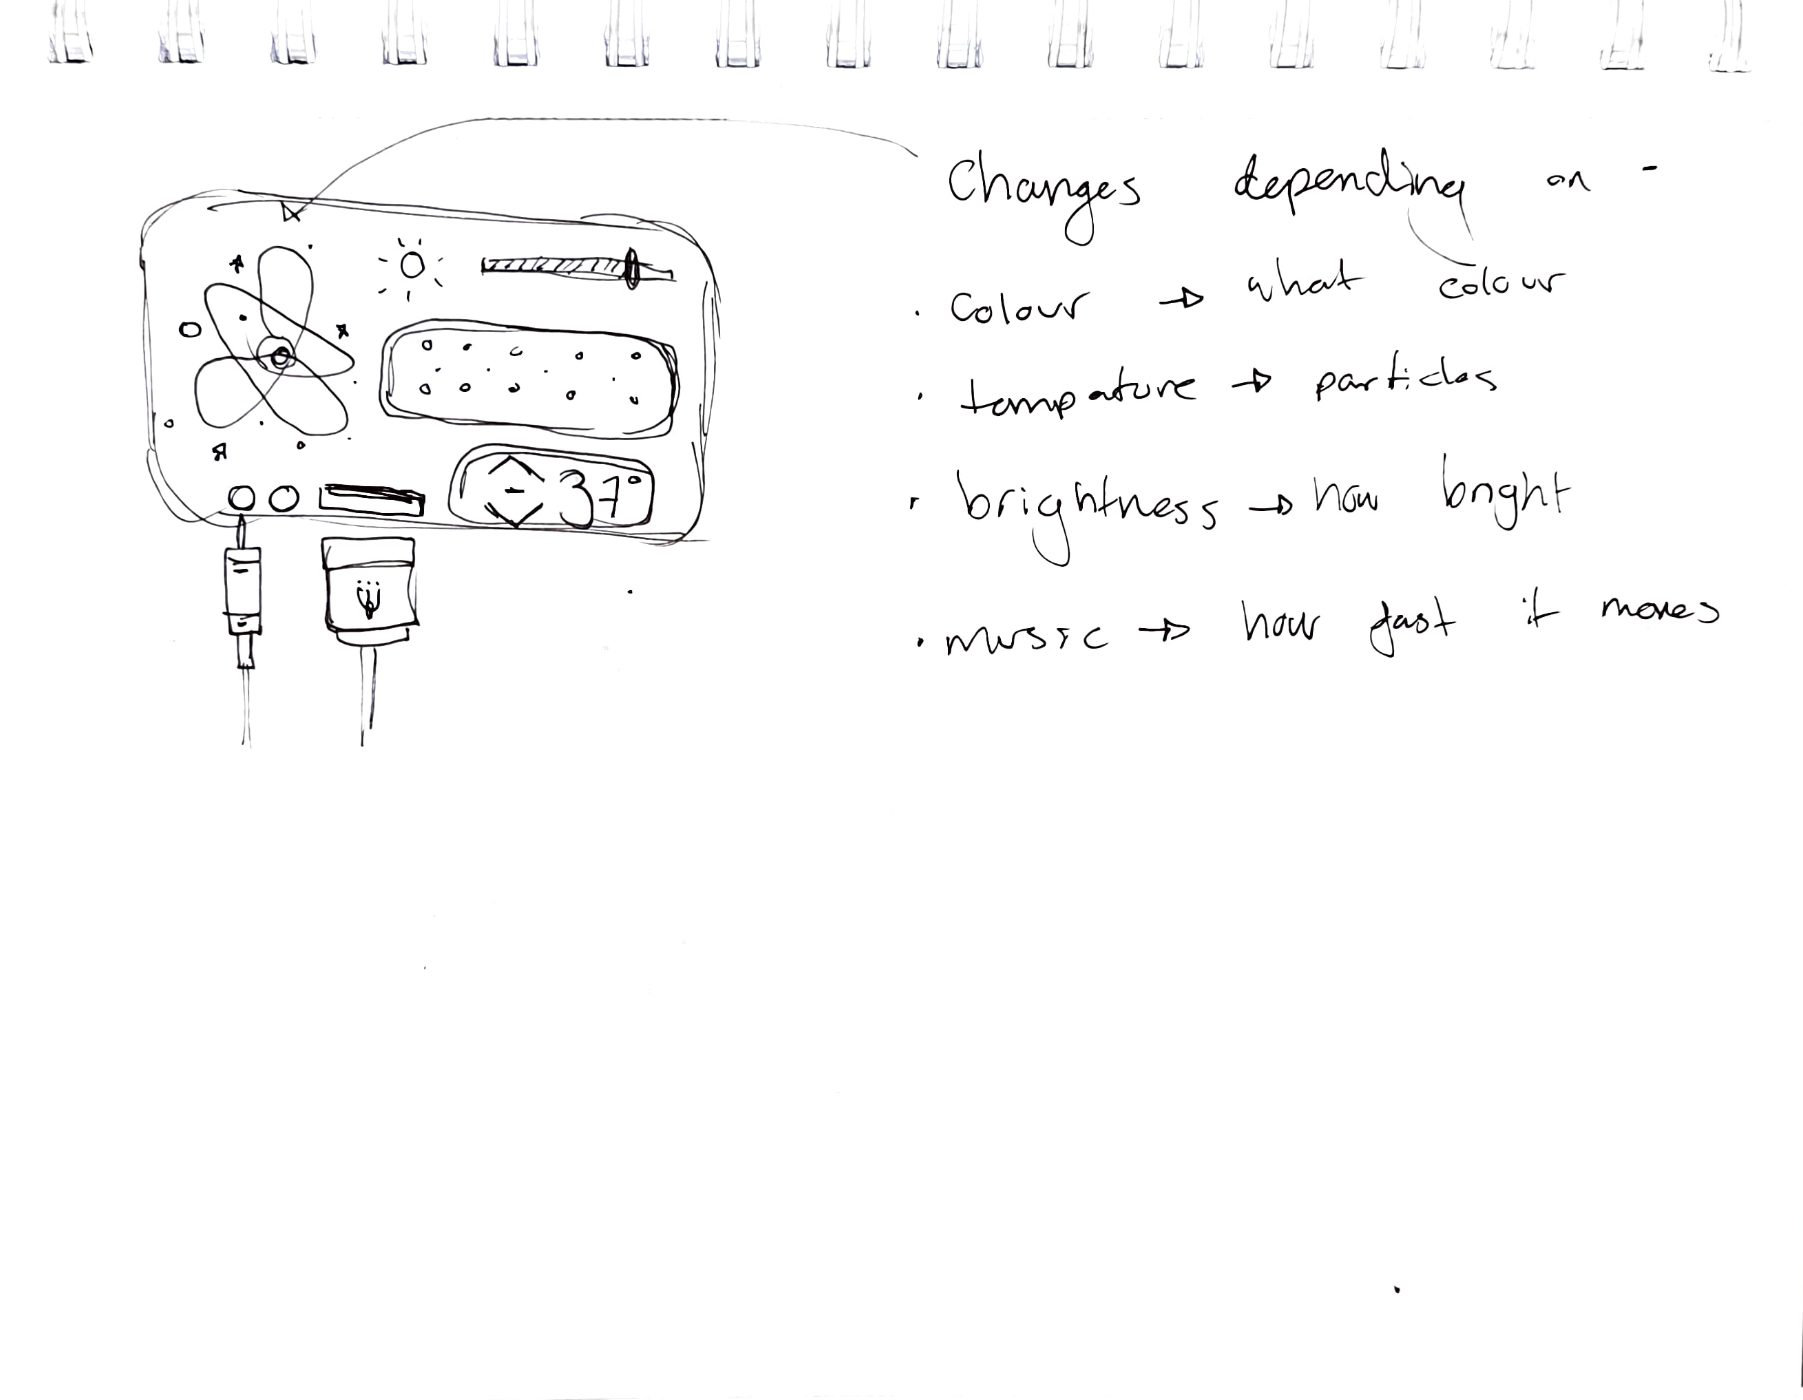 Changes depending on -
. Colour → what colour
. tempature → particles
. brightness → how bright
. music → how fast it moves
37°